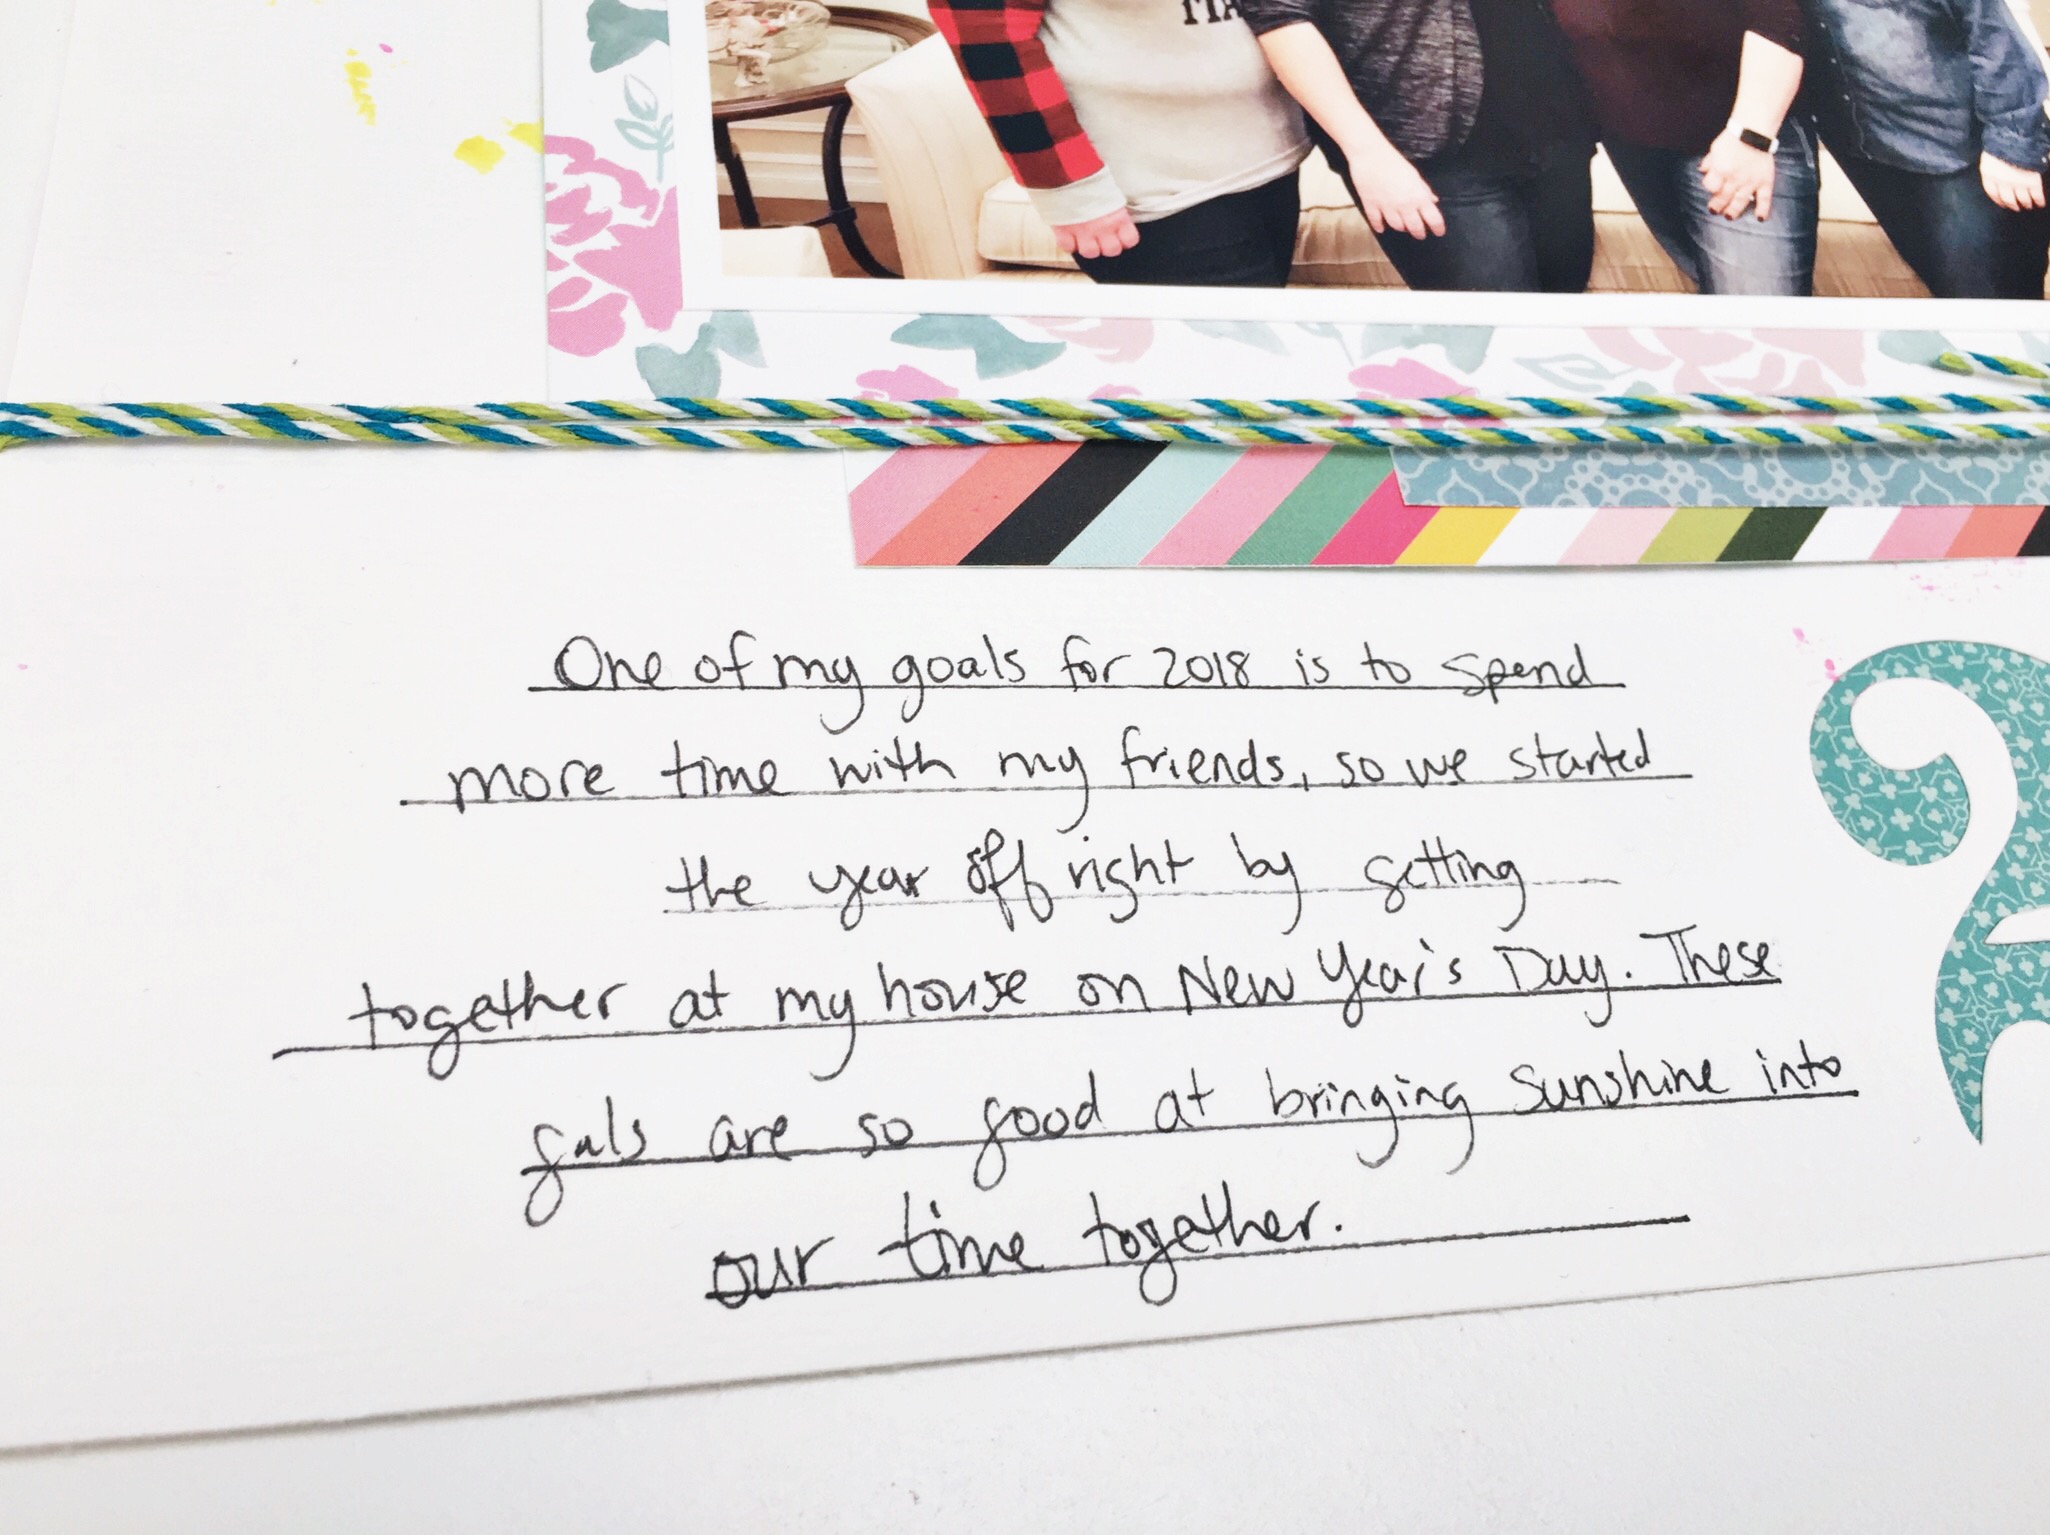 One of my goals for 2018 is to spend
more time with my friends, so we started
the year off right by getting
together at my house on New Year's Day. These
gals are so good at bringing sunshine into
our time together.